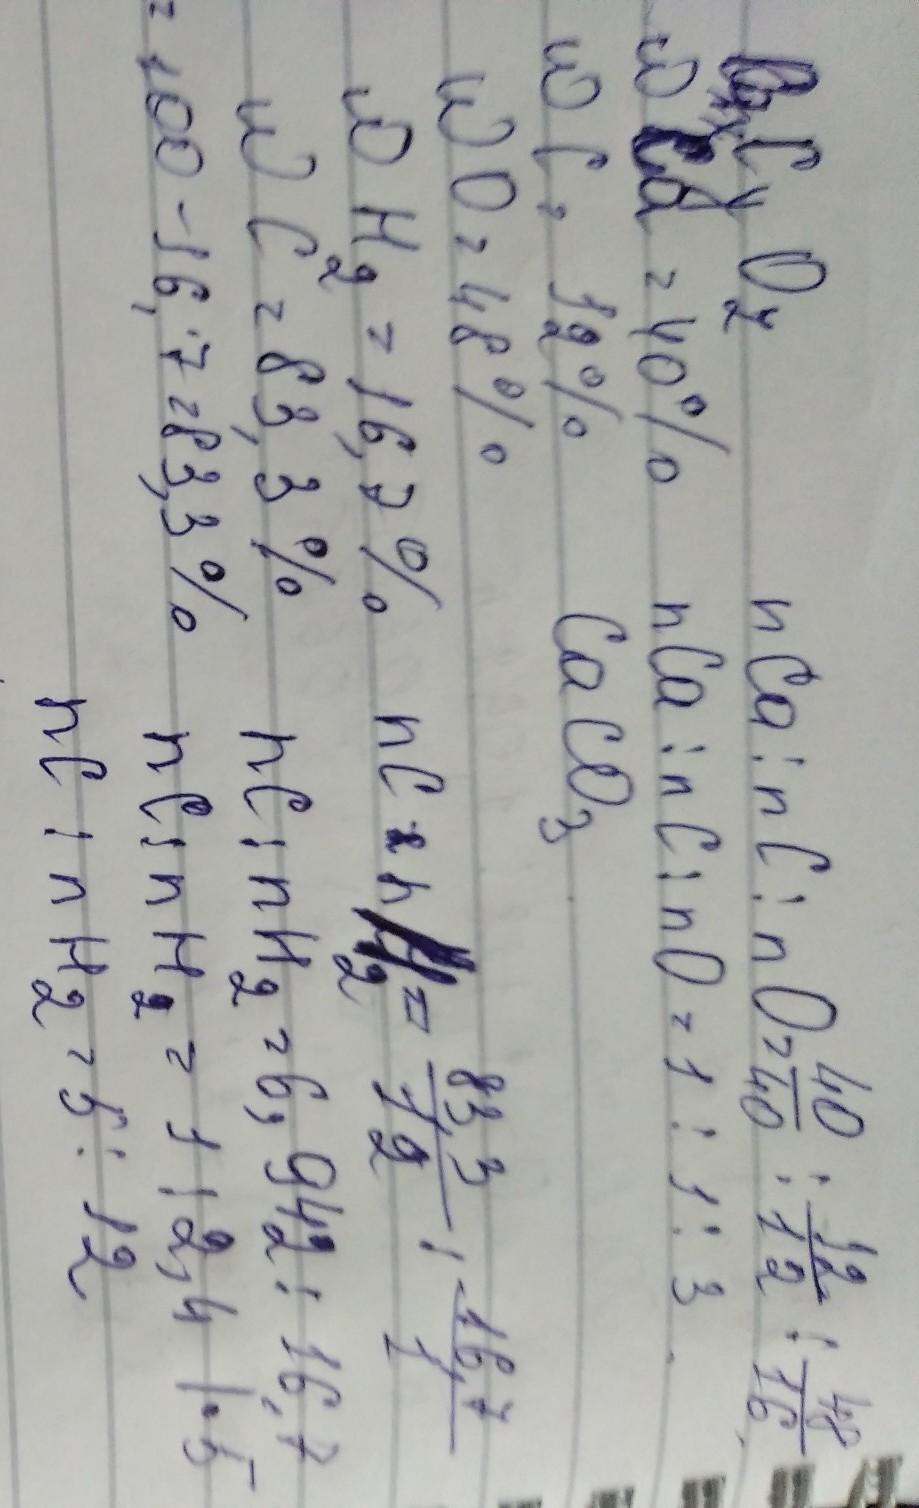 CaxCyOz nCa:nC:nO=40/40:12/12:48/16
ωCa=40% nCa:nC:nO=1:1:3
ωC=12% CaCO3
ωO=48%
ωH2=16,7% nC:nH2=83,3/12:16,7/1
ωC=83,3% nC:nH2=6,942:16,7
=100-16,7=83,3% nC:nH2=1:2,4 |·5
nC:nH2=5:12